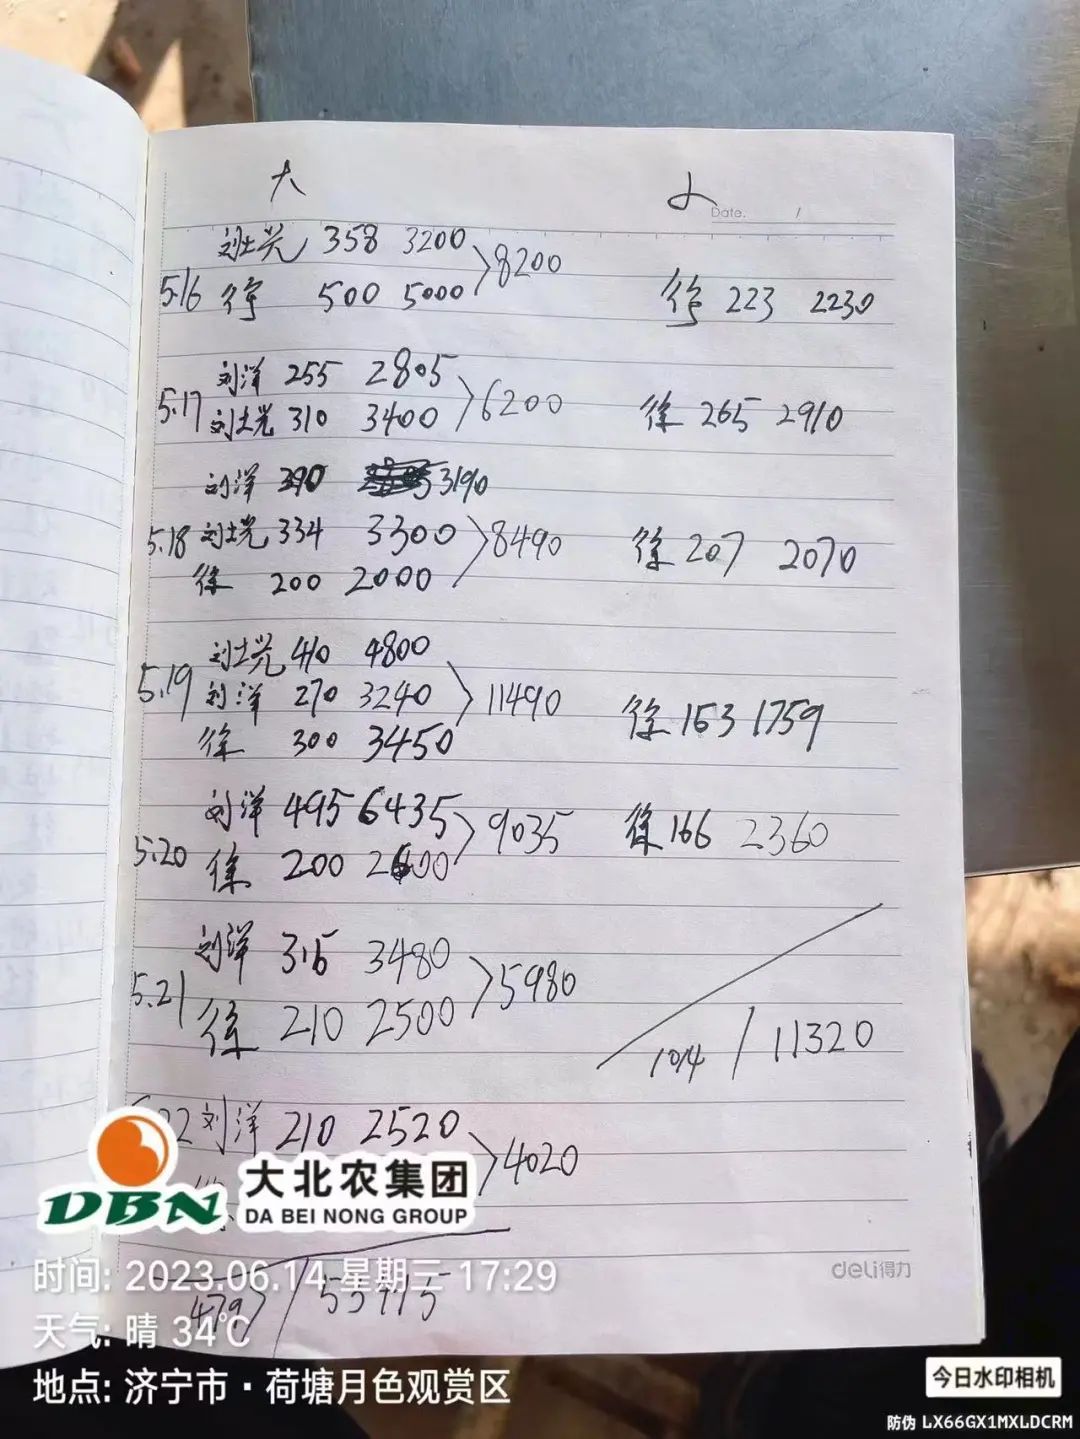 大 小
Date. /
刘士兴 358 3200
5.16 徐 500 5000 >8200 徐 223 2230
刘洋 255 2805
5.17 刘士兴 310 3400 >6200 徐 265 2910
刘洋 290 3190
5.18 刘士兴 334 3300 >8490 徐 207 2070
徐 200 2000
刘士兴 410 4800
5.19 刘洋 270 3240 >11490 徐 153 1759
徐 300 3450
刘洋 495 6435
5.20 徐 200 2600 >9035 徐 166 2360
刘洋 315 3480
5.21 徐 210 2500 >5980
1014 / 11320
22 刘洋 210 2520 >4020
DBN 大北农集团
DA BEI NONG GROUP
deli得力
时间: 2023.06.14 星期三 17:29
天气: 晴 34℃
地点: 济宁市·荷塘月色观赏区
今日水印相机
防伪 LX66GX1MXLDCRM